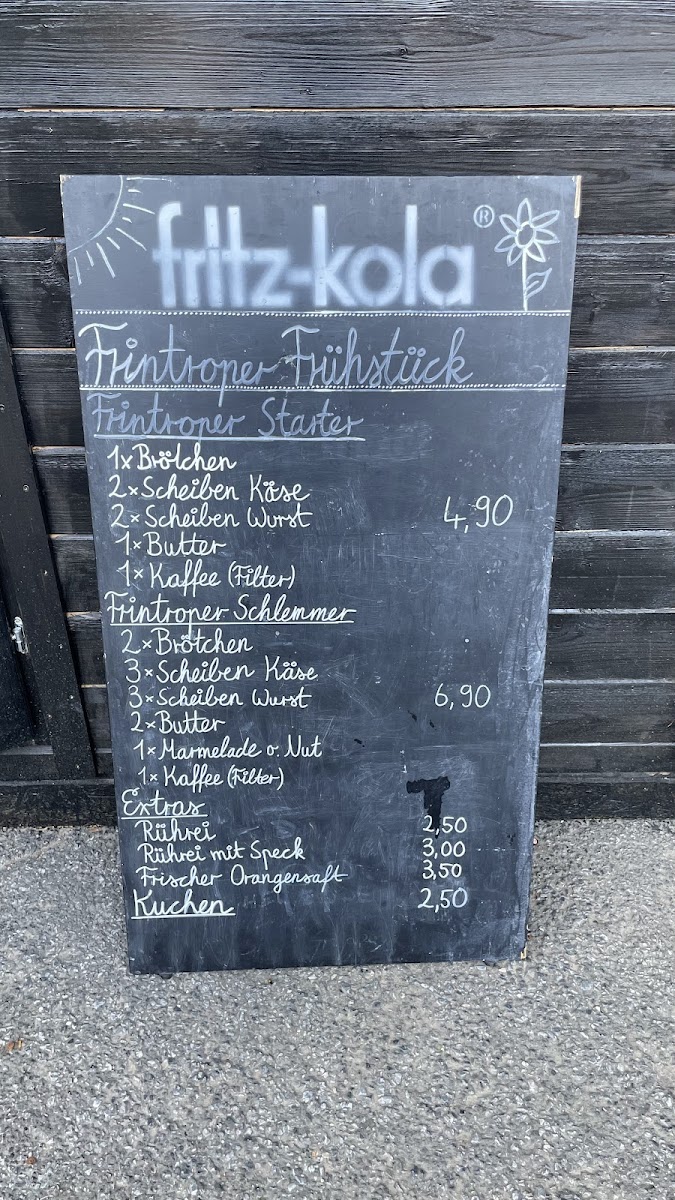 fritz-kola ®
Frintroper Frühstück
Frintroper Starter
1x Brötchen
2x Scheiben Käse
2x Scheiben Wurst 4,90
1x Butter
1x Kaffee (Filter)
Frintroper Schlemmer
2x Brötchen
3x Scheiben Käse
3x Scheiben Wurst 6,90
2x Butter
1x Marmelade o. Nut
1x Kaffee (Filter)
Extras
Rührei 2,50
Rührei mit Speck 3,00
Frischer Orangensaft 3,50
Kuchen 2,50